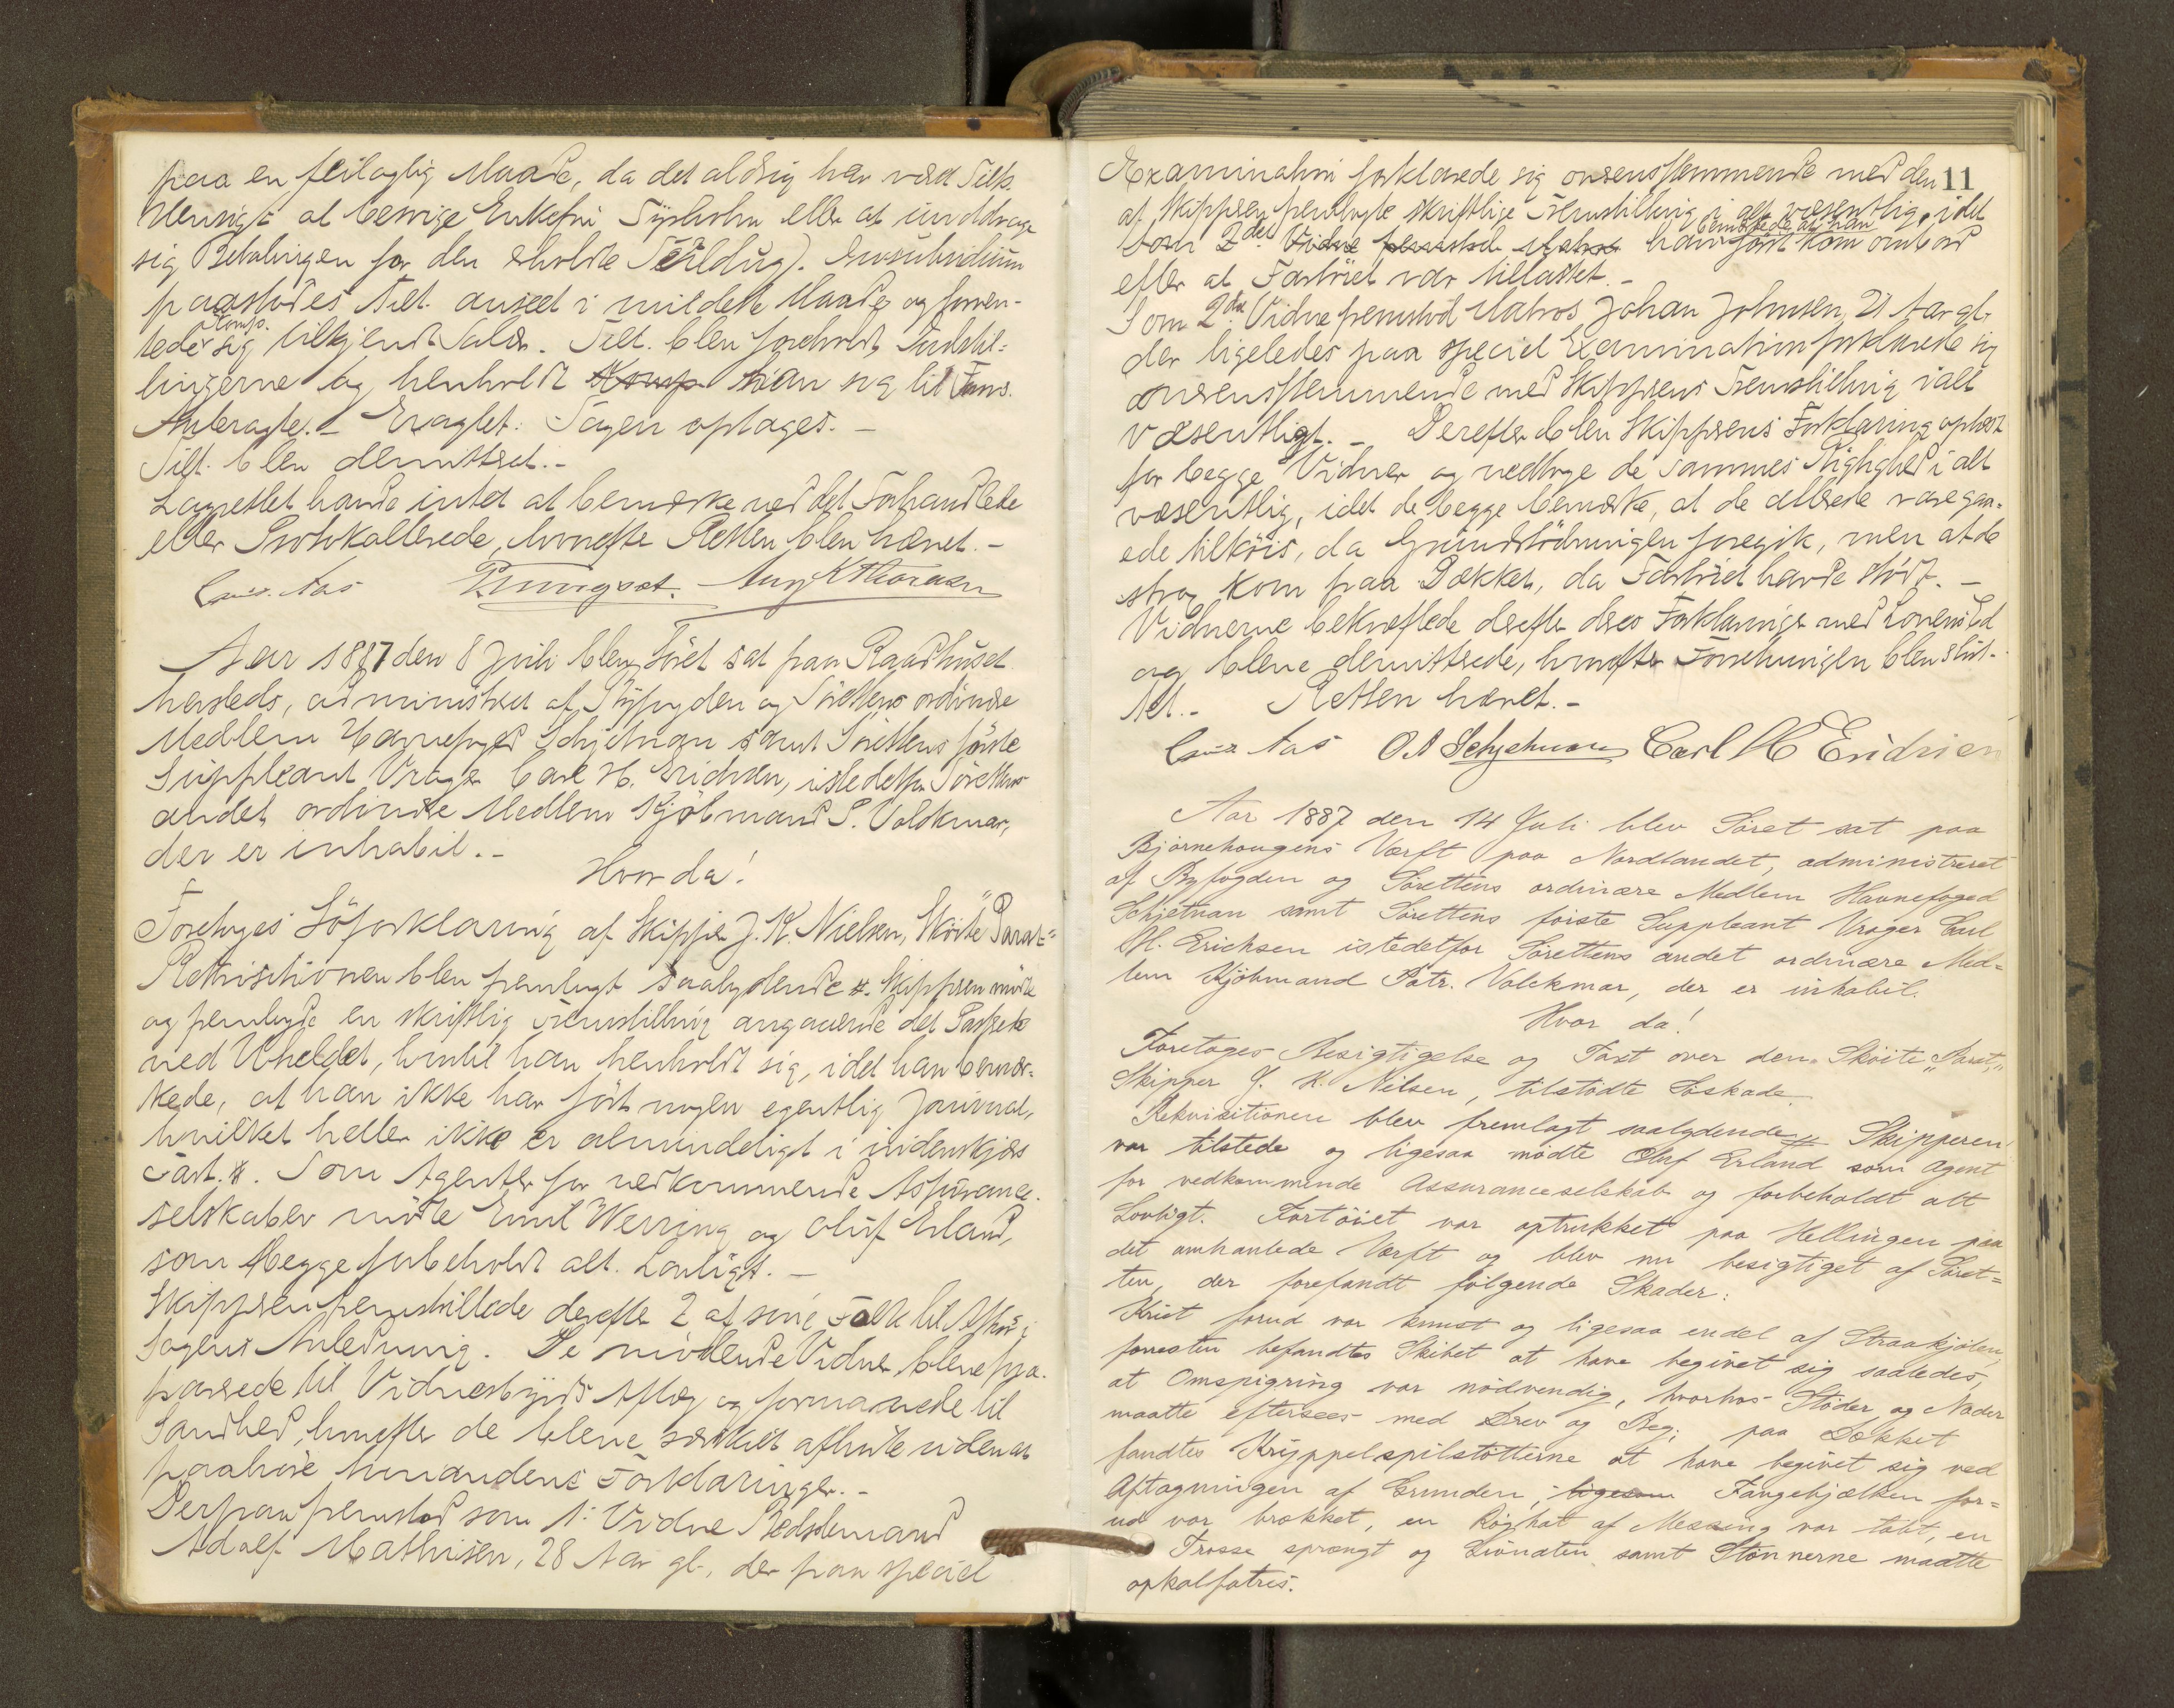 paa en feilagtig Maade, da det aldrig har været Tilt.
Mening at besvige Enkefru Dyrholm eller at unddrage
sig Betalingen for den erholdte Seildug). In subsidium
paastodes Tilt. anseet i mildeste Maade og forven-
tede Comp. sig tilkjendt Salær. Tilt. blev foreholdt Indstil-
lingerne og henholdt Komp han sig til Defens.
Anbragte. – Eragtet: Sagen optages. –
Tilt. blev demitteret. –
Lagrettet havde intet at bemærke ved det Forhandlede
eller Protokollerede, hvorefter Retten blev hævet. –
Chris. Aas Aug K Thoresen
Aar 1887 den 8 Juli blev Søret sat paa Raadhuset
hersteds, administreret af Byfogden og Sørettens ordinære
Medlem Havnefoged Schjetnan samt Sørettens første
Suppleant Vrager Carl H. Erichsen, istedetfor Sørettens
andet ordinære Medlem Kjøbmand P. Volckmar,
der er inhabil. –
Hvor da!
Foretoges Søforklaring af Skipper J. K. Nielsen, Skøite "Parat"
Rekvisitionen blev fremlagt saalydende #. Skipperen mødte
og fremlagde en skriftlig Fremstilling angaaende det Passerede
ved Uheldet, hvortil han henholdt sig, idet han bemær-
kede, at han ikke har ført nogen egentlig Journal,
hvilket heller ikke er almindeligt i indenskjærs
Fart. #. Som Agenter for vedkommende Assurance-
selskaber mødte Emil Werring og Oluf Erland,
som begge forbeholdt alt Lovligt. –
Skipperen fremstillede derefter 2 af sine Folk til Afhør i
Sagens Anledning. De mødende Vidner bleve fra-
passede til Vidnesbyrds Aflæg og formanede til
Sandhed, hvorefter de bleve særskilt afhørte uden at
paahøre hinandens Forklaringer. –
Derpaa fremstod som 1. Vidne Bedstemand
Adolf Mathisen, 28 Aar gl., der paa speciel
11
Examination forklarede sig overensstemmende med den
af Skipperen fremlagte skriftlige Fremstilling i alt væsentlig, idet
Som 2det Vidne fremstod Matros han bemærkede at han først kom ombord
efter at Fartøiet var tillastet. –
Som 2det Vidne fremstod Matros Johan Johnsen, 21 Aar gl.
der ligeledes paa speciel Examination forklarede sig
overensstemmende med Skipperens Fremstilling i alt
Væsentligt. – Derefter blev Skipperens Forklaring oplæst
for begge Vidner og vedtoge de sammes Rigtighed i alt
væsentlig, idet de begge bemærke, at de allerede vare gaa-
ede tilkøis, da Grundstødningen foregik, men at de
strax kom paa Dækket, da Fartøiet havde stødt. –
Vidnerne bekræftede derefter deres Forklaringer med Lovens Ed
og bleve demitterede, hvorefter Forretningen blev slut-
tet. – Retten hævet. –
Chris Aas O. A Schjetnan Carl H Erichsen
Aar 1887 den 14 Juli blev Søret sat paa
Bjørnehougens Værft paa Nordlandet, administreret
af Byfogden og Sørettens ordinære Medlem Havnefoged
Schjetnan samt Sørettens første Suppleant Vrager Carl
H. Erichsen istedetfor Sørettens andet ordinære Med=
lem Kjøbmand Patr. Volckmar, der er inhabil.
Hvor da!
Foretoges Besigtigelse og Taxt over den Skøite "Parat,"
Skipper J. K. Nilsen, tilstødte Søskade.
Rekvisitionen blev fremlagt saalydende #. Skipperen
var tilstede og ligesaa mødte Oluf Erland som Agent
for vedkommende Assuranceselskab og forbeholdt alt
Lovligt. Fartøiet var optrukket paa Hellingen paa
det omhandlede Værft og blev nu besigtiget af Søret=
ten, der forefandt følgende Skader:
Knæet forud var knust og ligesaa endel af Straakjølen,
foresten befandtes Skibet at have begivet sig saaledes,
at Omspigring var nødvendig, hvorhos Støder og Nader
maatte eftersees med Drev og Beg; paa Dækket
fandtes Kryppelspilstøtterne at have begivet sig ved
Aftagningen af Grunden, ligesom Fangebjælken for=
ud var brækket, en Røghat af Messing var tabt, en
Trosse sprængt og Livnaten samt Stønnerne maatte
opkalfatres.